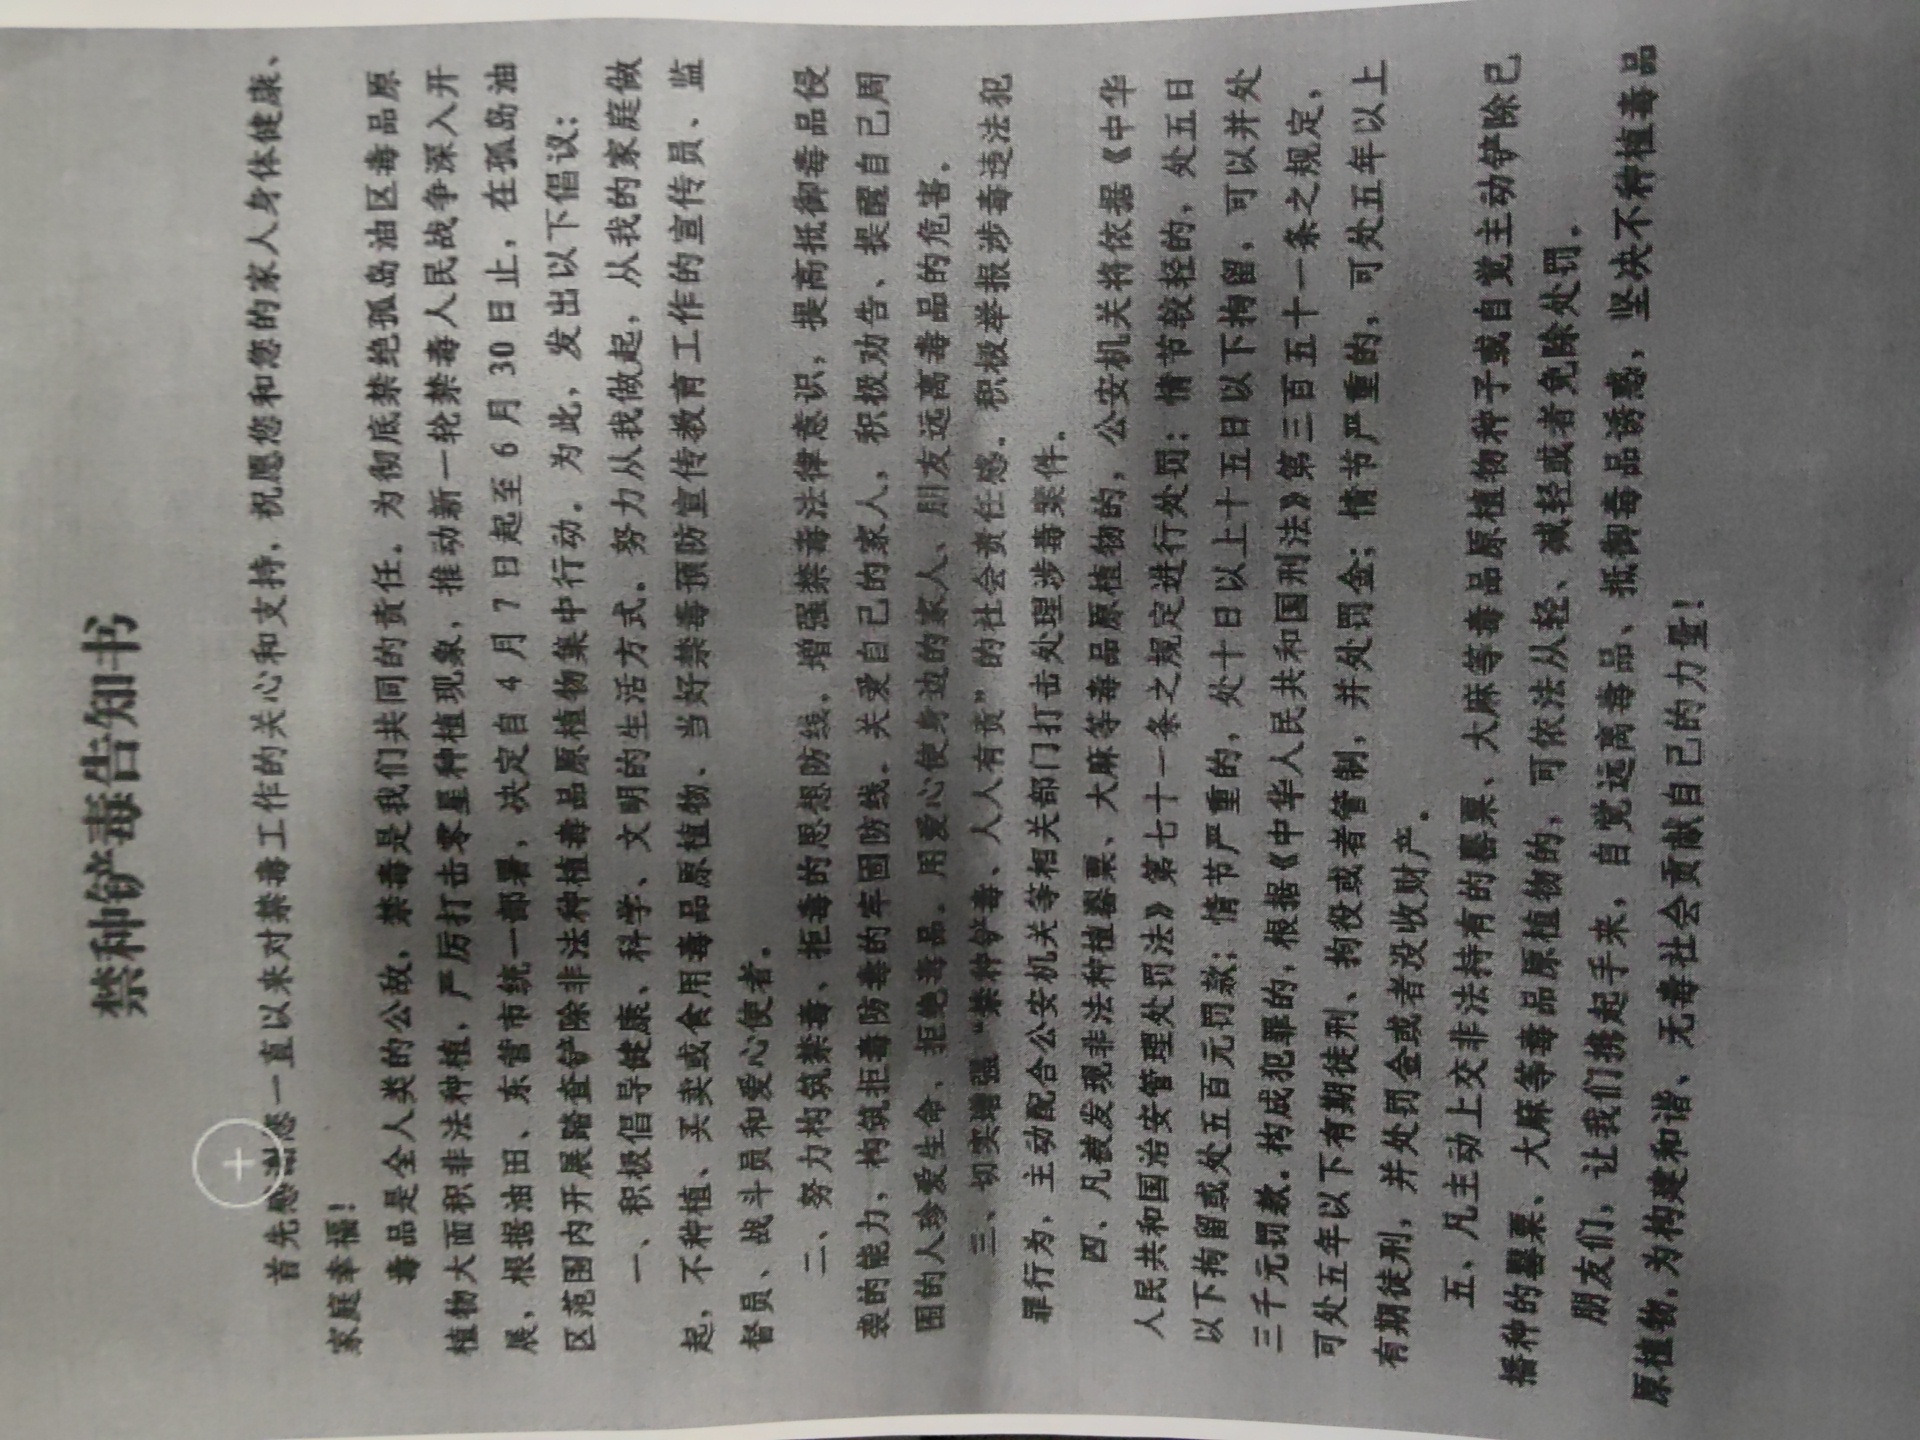 禁种铲毒告知书
首先感谢您一直以来对禁毒工作的关心和支持，祝愿您和您的家人身体健康、
家庭幸福！
毒品是全人类的公敌，禁毒是我们共同的责任。为彻底禁绝孤岛油区毒品原
植物大面积非法种植，严厉打击零星种植现象，推动新一轮禁毒人民战争深入开
展，根据油田、东营市统一部署，决定自 4 月 7 日起至 6 月 30 日止，在孤岛油
区范围内开展踏查铲除非法种植毒品原植物集中行动。为此，发出以下倡议：
一、积极倡导健康、科学、文明的生活方式。努力从我做起，从我的家庭做
起，不种植、买卖或食用毒品原植物、当好禁毒预防宣传教育工作的宣传员、监
督员、战斗员和爱心使者。
二、努力构筑禁毒、拒毒的思想防线。增强禁毒法律意识，提高抵御毒品侵
袭的能力，构筑拒毒防毒的牢固防线。关爱自己的家人，积极劝告、提醒自己周
围的人珍爱生命、拒绝毒品。用爱心使身边的家人、朋友远离毒品的危害。
三、切实增强“禁种铲毒、人人有责”的社会责任感。积极举报涉毒违法犯
罪行为，主动配合公安机关等相关部门打击处理涉毒案件。
四、凡被发现非法种植罂粟、大麻等毒品原植物的，公安机关将依据《中华
人民共和国治安管理处罚法》第七十一条之规定进行处罚：情节较轻的，处五日
以下拘留或处五百元罚款；情节严重的，处十日以上十五日以下拘留，可以并处
三千元罚款。构成犯罪的，根据《中华人民共和国刑法》第三百五十一条之规定，
可处五年以下有期徒刑、拘役或者管制，并处罚金；情节严重的，可处五年以上
有期徒刑，并处罚金或者没收财产。
五、凡主动上交非法持有的罂粟、大麻等毒品原植物种子或自觉主动铲除已
播种的罂粟、大麻等毒品原植物的，可依法从轻、减轻或者免除处罚。
朋友们，让我们携起手来，自觉远离毒品、抵御毒品诱惑，坚决不种植毒品
原植物，为构建和谐、无毒社会贡献自己的力量！